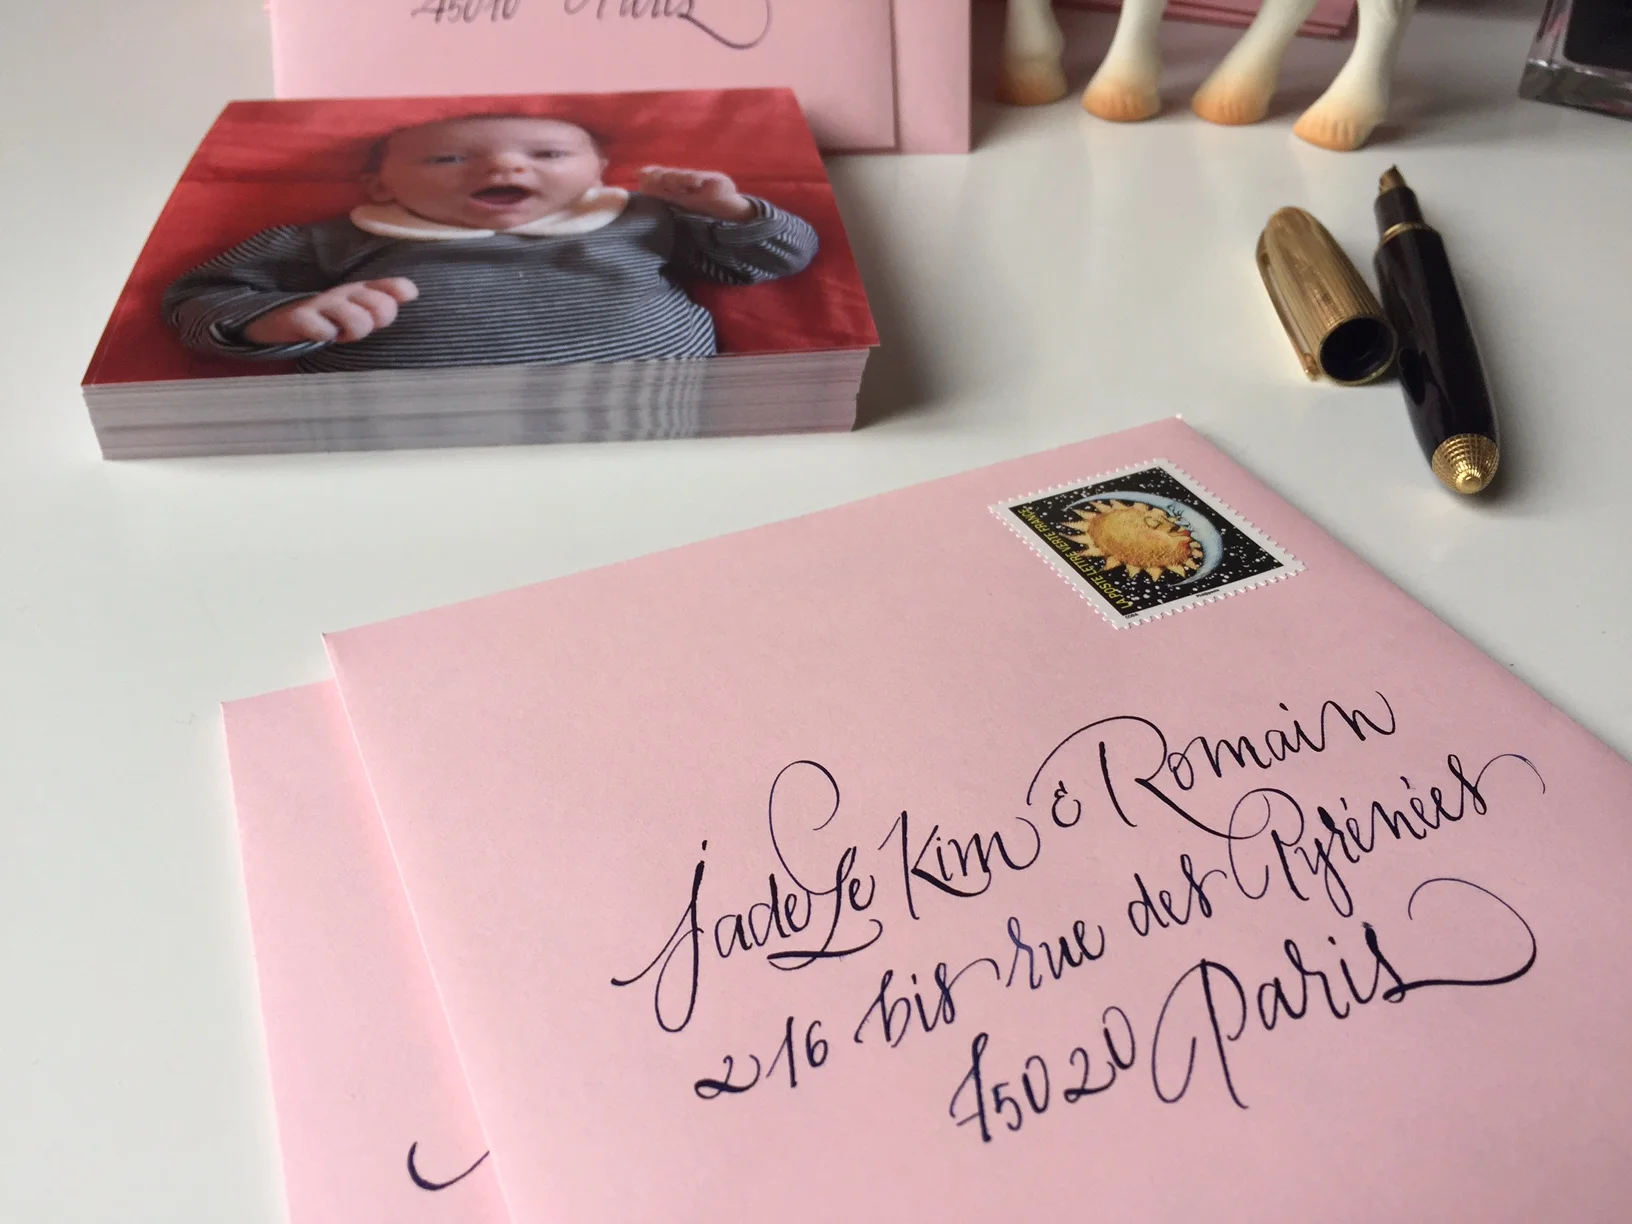 75010 Paris
LA POSTE LETTRE VERTE FRANCE
Jade Le Kim & Romain
216 bis rue des Pyrénées
75020 Paris